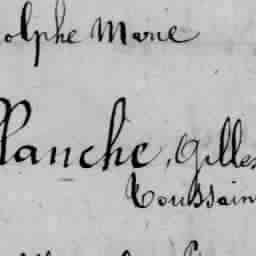 olphe Marie
Planche, Gilles
Toussain